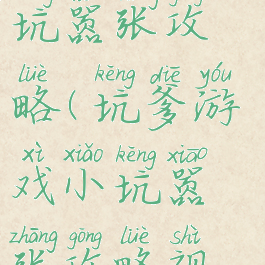 坑嚣张攻
lüè kēng diē yóu
略(坑爹游
xì xiǎo kēng xiāo
戏小坑嚣
zhāng gōng lüè shì
张攻略视